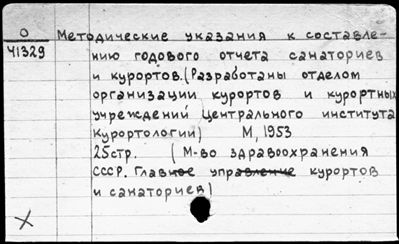 О
41329
Методические указания к составле-
нию годового отчета санаториев
и курортов. (Разработаны отделом
организации курортов и курортных
учреждений Центрального института
Курортологии) М, 1953
25стр. (М-во здравоохранения
СССР. Главное управление курортов
и санаториев)
X